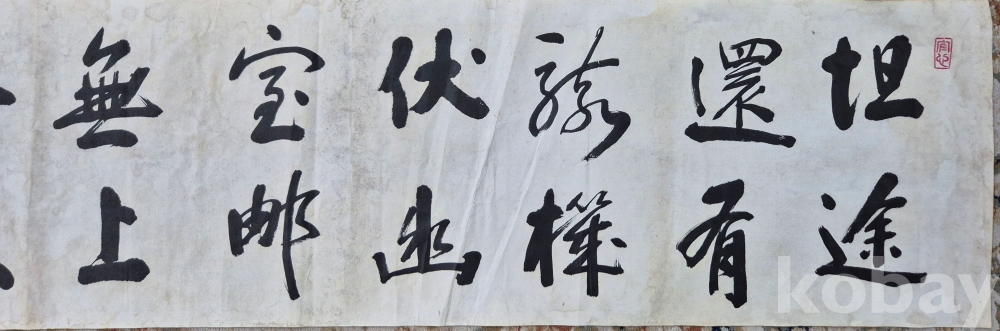 坦途
還有
駭機
伏幽
室那
無上
kobay